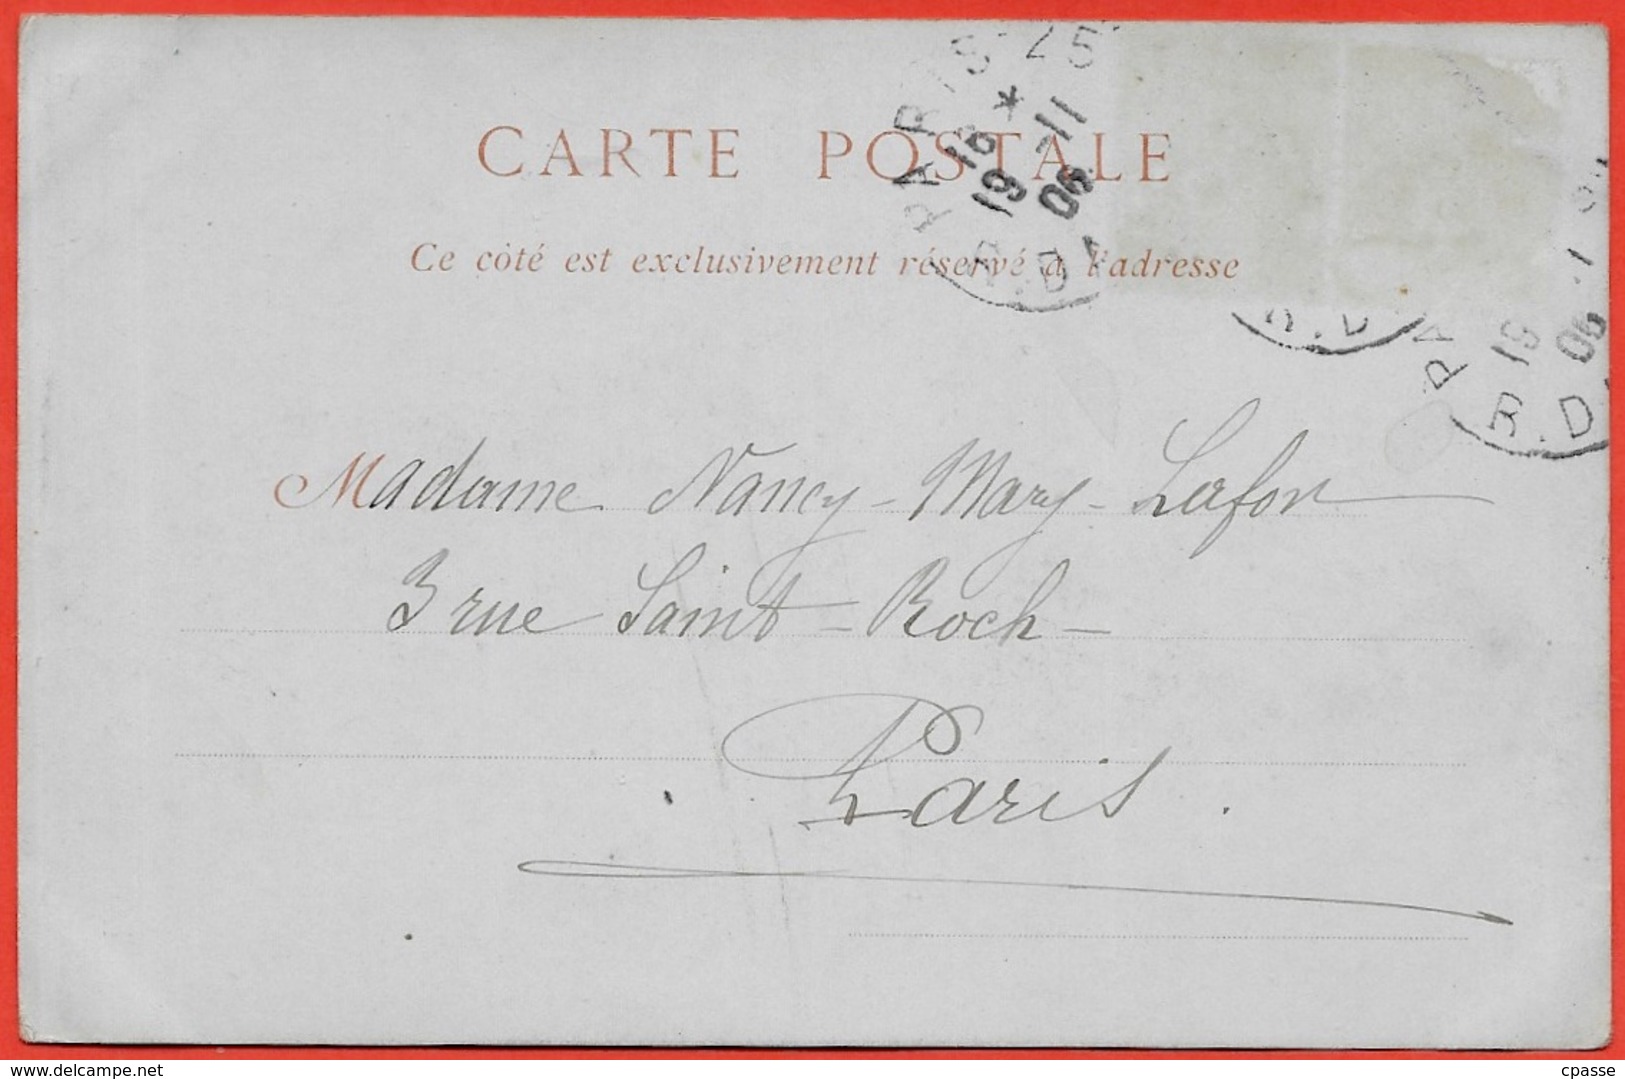 PARIS 25
*
16 11
19 06
R. D
CARTE POSTALE
Ce côté est exclusivement réservé à l'adresse
R. D
PA
19 06
R. D
Madame Nancy-Mary-Lafon
3 rue Saint-Roch-
Paris.
delcampe.net
cpasse